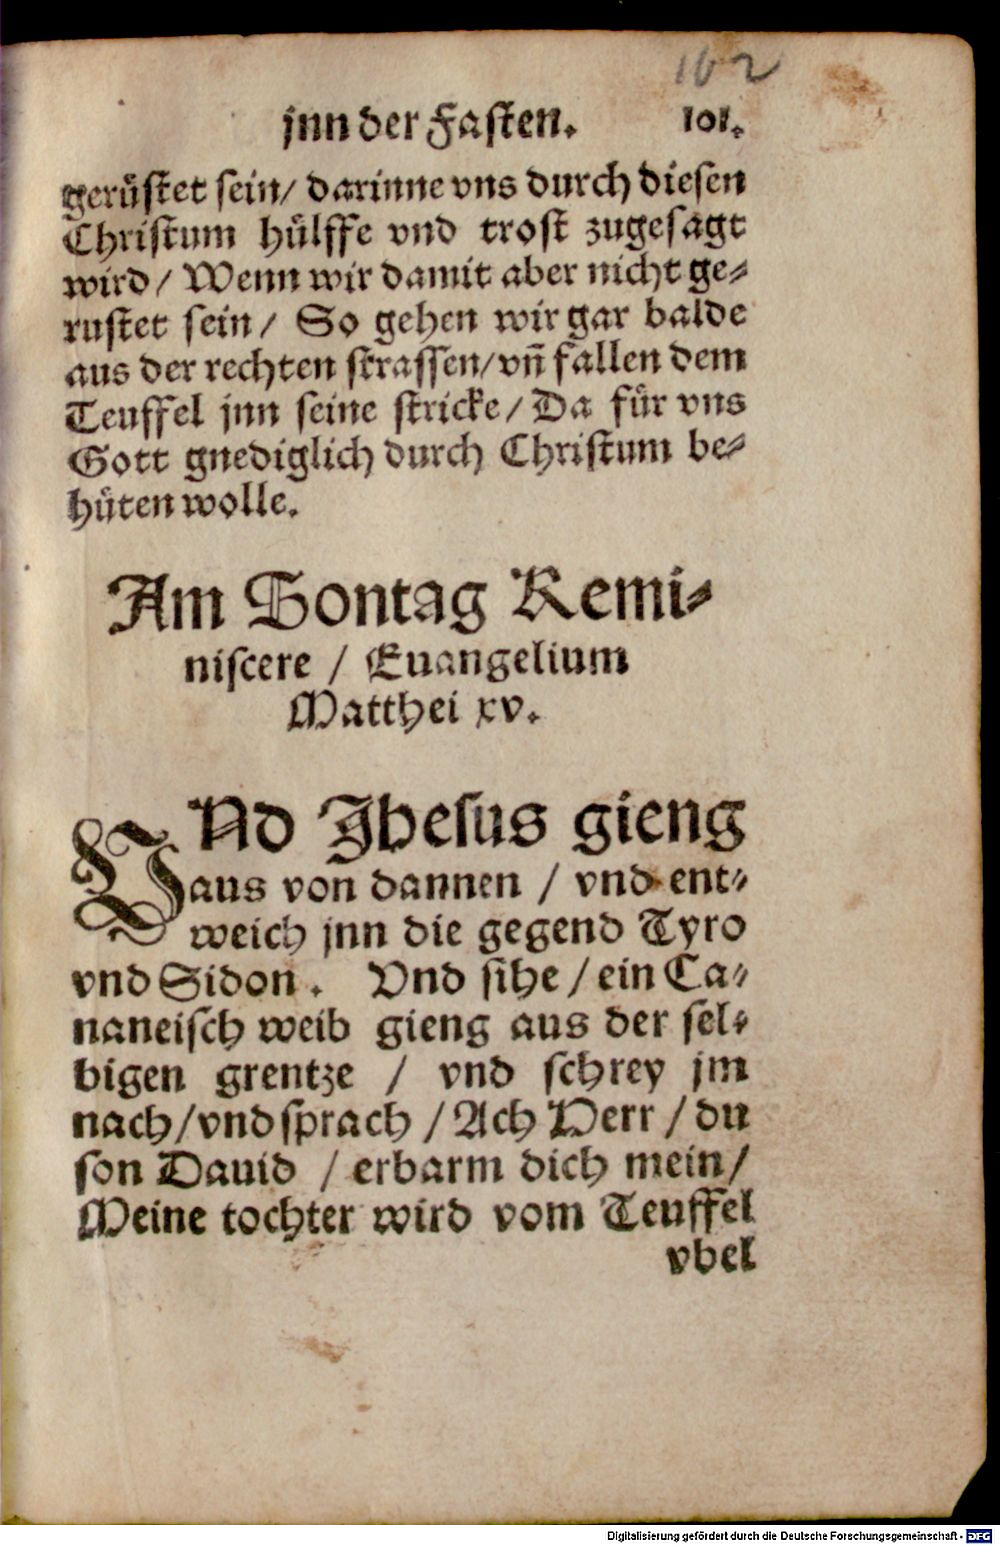 162
jnn der Fasten. 101.
gerüstet sein/ darinne vns durch diesen
Christum hülffe vnd trost zugesagt
wird/ Wenn wir damit aber nicht ge-
rustet sein/ So gehen wir gar balde
aus der rechten strassen/ vñ fallen dem
Teuffel jnn seine stricke/ Da für vns
Gott gnediglich durch Christum be-
hüten wolle.
Am Sontag Remi-
niscere / Euangelium
Matthei xv.
VNd Jhesus gieng
aus von dannen / vnd ent-
weich jnn die gegend Tyro
vnd Sidon. Vnd sihe / ein Ca-
naneisch weib gieng aus der sel-
bigen grentze / vnd schrey jm
nach/ vnd sprach / Ach HErr / du
son Dauid / erbarm dich mein/
Meine tochter wird vom Teuffel
vbel
Digitalisierung gefördert durch die Deutsche Forschungsgemeinschaft - DFG